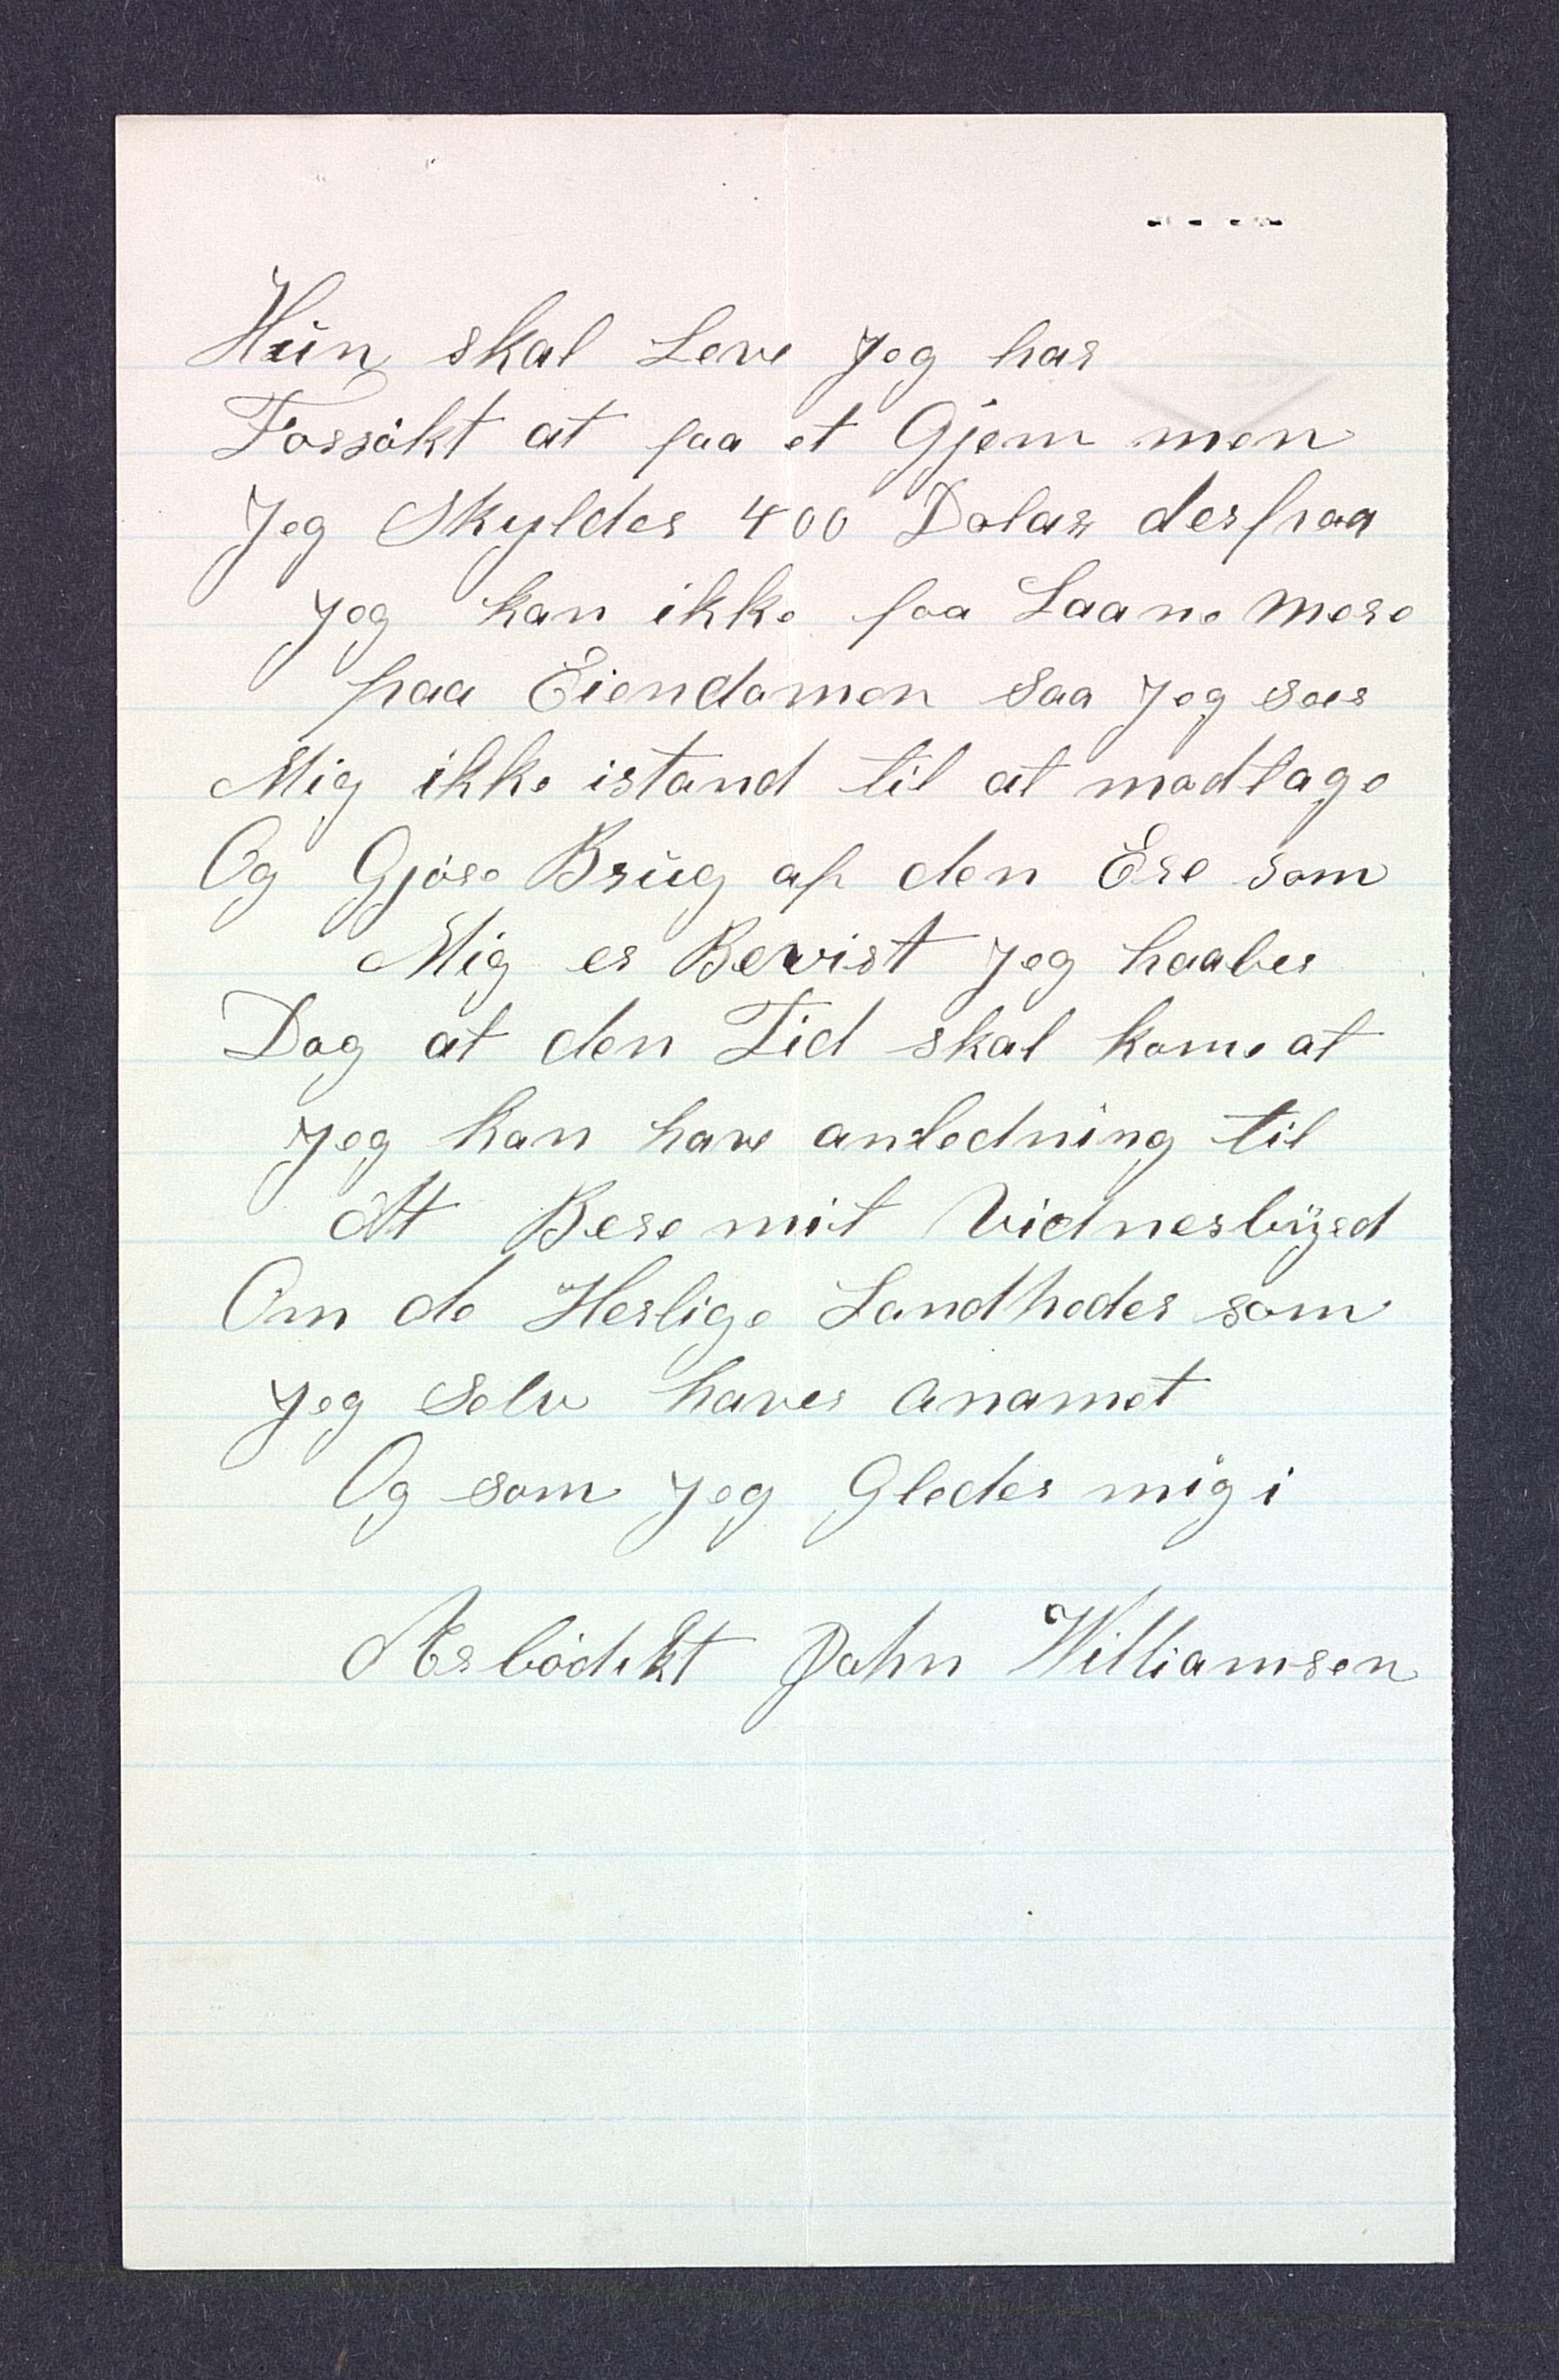 Hun skal Leve Jeg har
Forsökt at faa et Gjem men
Jeg Skylder 400 Dolar derpaa
Jeg kan ikke faa Laane mere
paa Eiendomen saa Jeg ser
Mig ikke istand til at modtage
Og Gjöre Brug af den Ere som
Mig er Bevist Jeg haaber
Dog at den Tid skal kome at
Jeg kan have anledning til
At Bere mit Vidnesbyrd
Om de Herlige Sandheder som
Jeg Selv haver anamet
Og som Jeg Gleder mig i
Ærbödikt John Williamsen